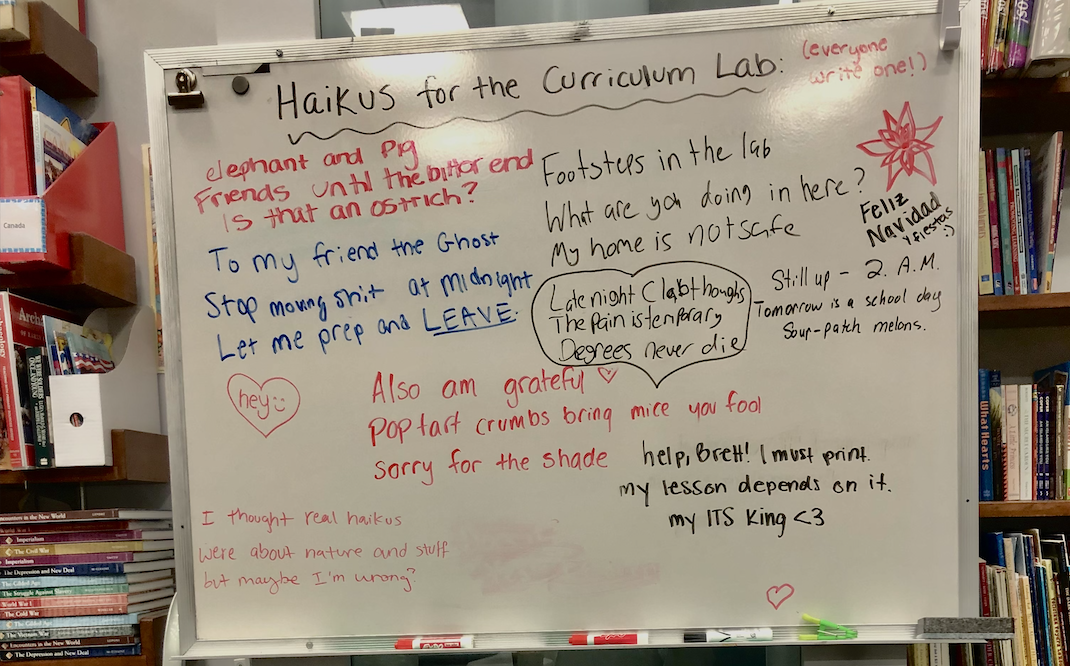 Haikus for the Curriculum Lab:
(everyone
write one!)
elephant and Pig
Friends until the bitter end
Is that an ostrich?
Footsteps in the lab
What are you doing in here?
My home is not safe
Feliz
Navidad
y fiestas
:)
To my friend the Ghost
Stop moving shit at midnight
Let me prep and LEAVE.
Late night Clab thoughs
The Pain is temporary
Degrees never die
Still up - 2. A.M.
Tomorrow is a school day
Sour-patch melons.
hey :)
Also am grateful ♡
Poptart crumbs bring mice you fool
sorry for the shade
help, Brett! I must print.
my lesson depends on it.
my ITS King <3
I thought real haikus
were about nature and stuff
but maybe I'm wrong?
Canada
What Hearts
Encounters in the New World
Imperialism
The Civil War
Imperialism
The Depression and New Deal
The Gilded Age
The Struggle Against Slavery
World War I
The Cold War
The Gilded Age
The Vietnam War
Encounters in the New World
The Depression and New Deal